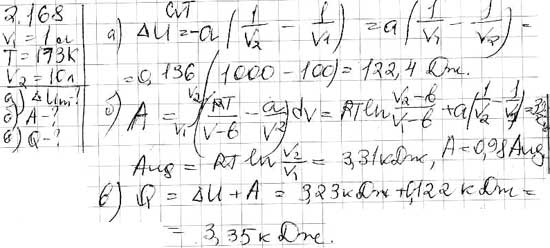 2.168
V₁ = 1л
T = 173K
V₂ = 10л
а) ΔUт?
б) A - ?
в) Q - ?
а) ΔU = -a(1/V₂ - 1/V₁) = a(1/V₁ - 1/V₂) =
= 0,136(1000 - 100) = 122,4 Дж.
б) A = ∫(RT/(V-b) - a/V²)dV = RT ln (V₂-b)/(V₁-b) + a(1/V₂ - 1/V₁) =
Aид = RT ln V₂/V₁ = 3,31кДж, A = 0,98 Aид
в) Q = ΔU + A = 3,23 кДж + 0,122 кДж =
= 3,35 кДж.